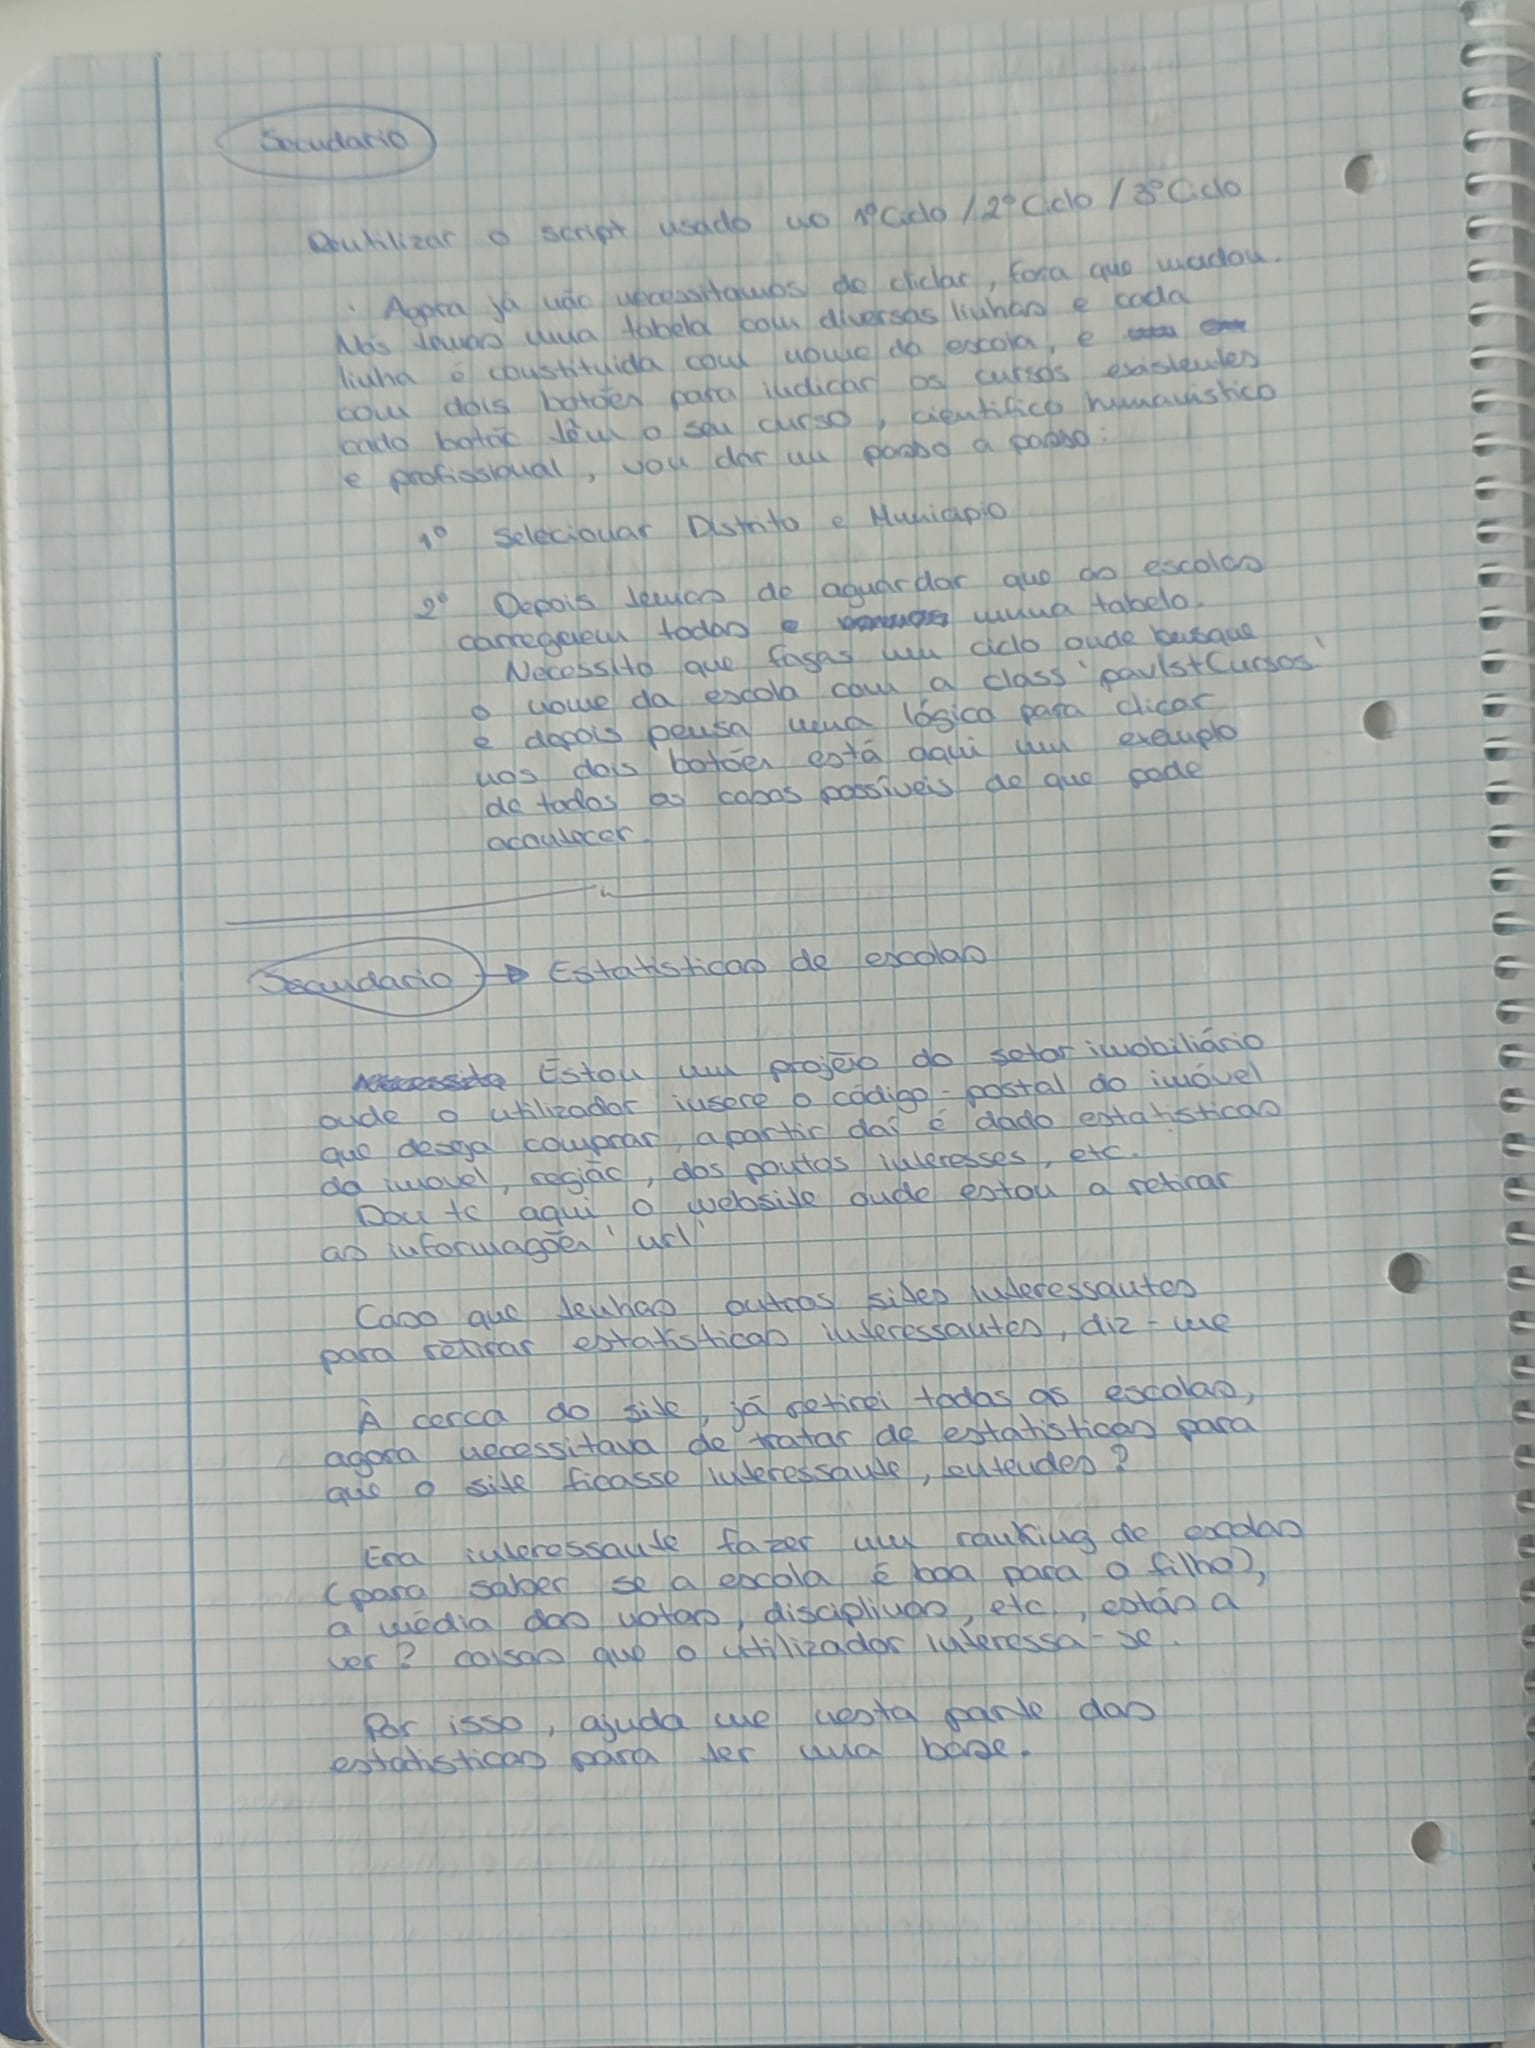 Secudario
Reutilizar o script usado no 1º Ciclo / 2º Ciclo / 3º Ciclo
· Agora já não necessitamos de cliclar, fora que mudou.
Nós temos uma tabela com diversas linhas e cada
linha é constituida com nome da escola, e
com dois botões para indicar os cursos existentes
cada botão têm o seu curso, cientifico humanistico
e profissional, vou dar um passo a passo:
1º Selecionar Distrito e Municipio
2º Depois temos de aguardar que as escolas
carreguem todas e numa tabela.
Necessito que faças um ciclo onde busque
o nome da escola com a class 'pavlstCursos'
e depois pensa numa lógica para clicar
nos dois botões está aqui um exemplo
de todos os casos possíveis de que pode
acontecer.
Secundario → Estatisticas de escolas
Estou um projeto do setor imobiliário
onde o utilizador insere o código-postal do imóvel
que deseja comprar, apartir daí é dado estatisticas
do imovel, região, dos pontos interesses, etc.
Dou te aqui o website onde estou a retirar
as informações 'url'
Caso que tenhas outros sites interessantes
para retirar estatisticas interessantes, diz-me
À cerca do site, já retirei todas as escolas,
agora necessitava de tratar de estatisticas para
que o site ficasse interessante, entendes?
Era interessante fazer um ranking de escolas
(para saber se a escola é boa para o filho),
a média das notas, disciplinas, etc, estás a
ver? coisas que o utilizador interessa-se.
Por isso, ajuda me nesta parte das
estatisticas para ter uma base.